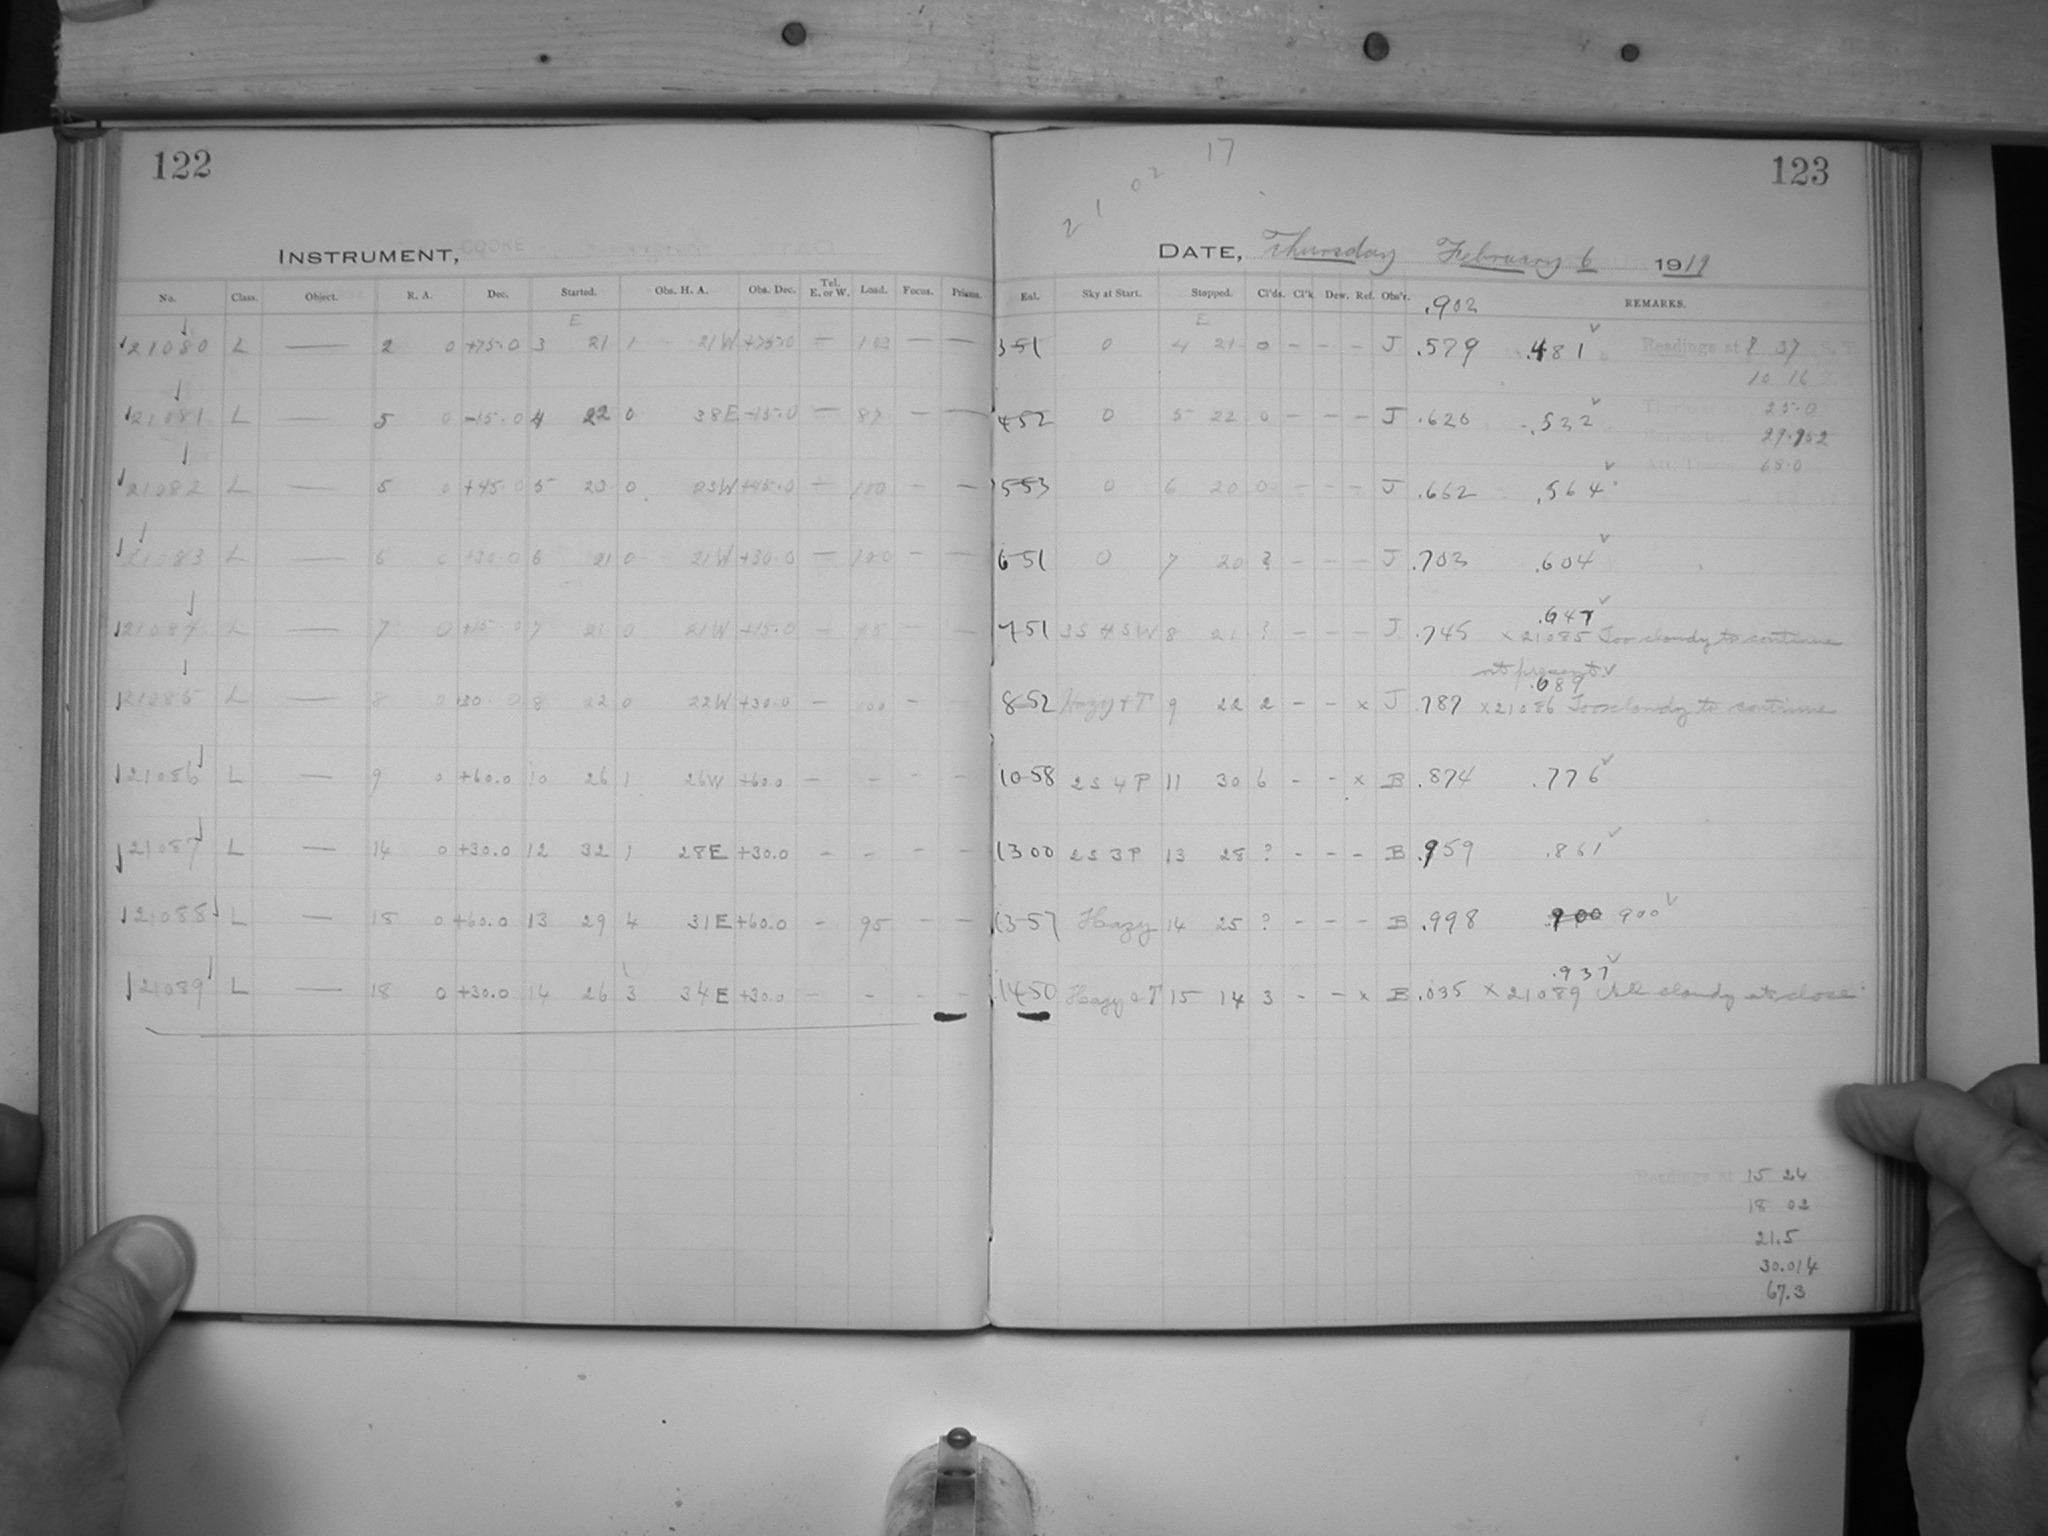 122
INSTRUMENT, COOKE
No. Class. Object. R. A. Dec. Started. Obs. H. A. Obs. Dec. Tel. E. or W. Load. Focus. Prisms.
E
21080 L — 2 0 +75.0 3 21 1 21W +75.0 — 103 — —
21081 L — 5 0 -15.0 4 22 0 38E -15.0 — 87 — —
21082 L — 5 0 +45.0 5 23 0 23W +45.0 — 100 — —
21083 L — 6 0 +30.0 6 21 0 21W +30.0 — 100 — —
21084 L — 7 0 +15.0 7 21 0 21W +15.0 — 95 — —
21085 L — 8 0 +30.0 8 22 0 22W +30.0 — 100 — —
21086 L — 9 0 +60.0 10 26 1 26W +60.0 — — — —
21087 L — 14 0 +30.0 12 32 1 28E +30.0 — — — —
21088 L — 18 0 +60.0 13 29 4 31E +60.0 — 95 — —
21089 L — 18 0 +30.0 14 26 3 34E +30.0 — — — —
17
2 1 0 2
123
DATE, Thursday February 6 1919
Eal. Sky at Start. Stopped. Cl'ds. Cl'k Dew. Ref. Obs'r. .902 REMARKS.
E
3-51 0 4 21 0 - - - J .579 .481 Readings at 8 37 S. T.
10 16
4-52 0 5 22 0 - - - J .620 .522 25.0
29.952
5-53 0 6 20 0 - - - J .662 .564 Att. Therm. 68.0
6-51 0 7 20 ? - - - J .703 .604
.647
7-51 3S 4 SW 8 21 ? - - - J .745 x 21085 Too cloudy to continue
at present
.689
8-52 Hazy + T 9 22 2 - - x J .787 x 21086 Too cloudy to continue
10-58 2 S 4 P 11 30 6 - - x B .874 .776
13 00 2 S 3 P 13 28 ? - - - B .959 .861
13-57 Hazy 14 25 ? - - - B .998 900 900
.937
14-50 Hazy & T 15 14 3 - - x B .035 x 21089 All cloudy at close
Readings at 15 24 S. T.
18 02
21.5
30.014
67.3